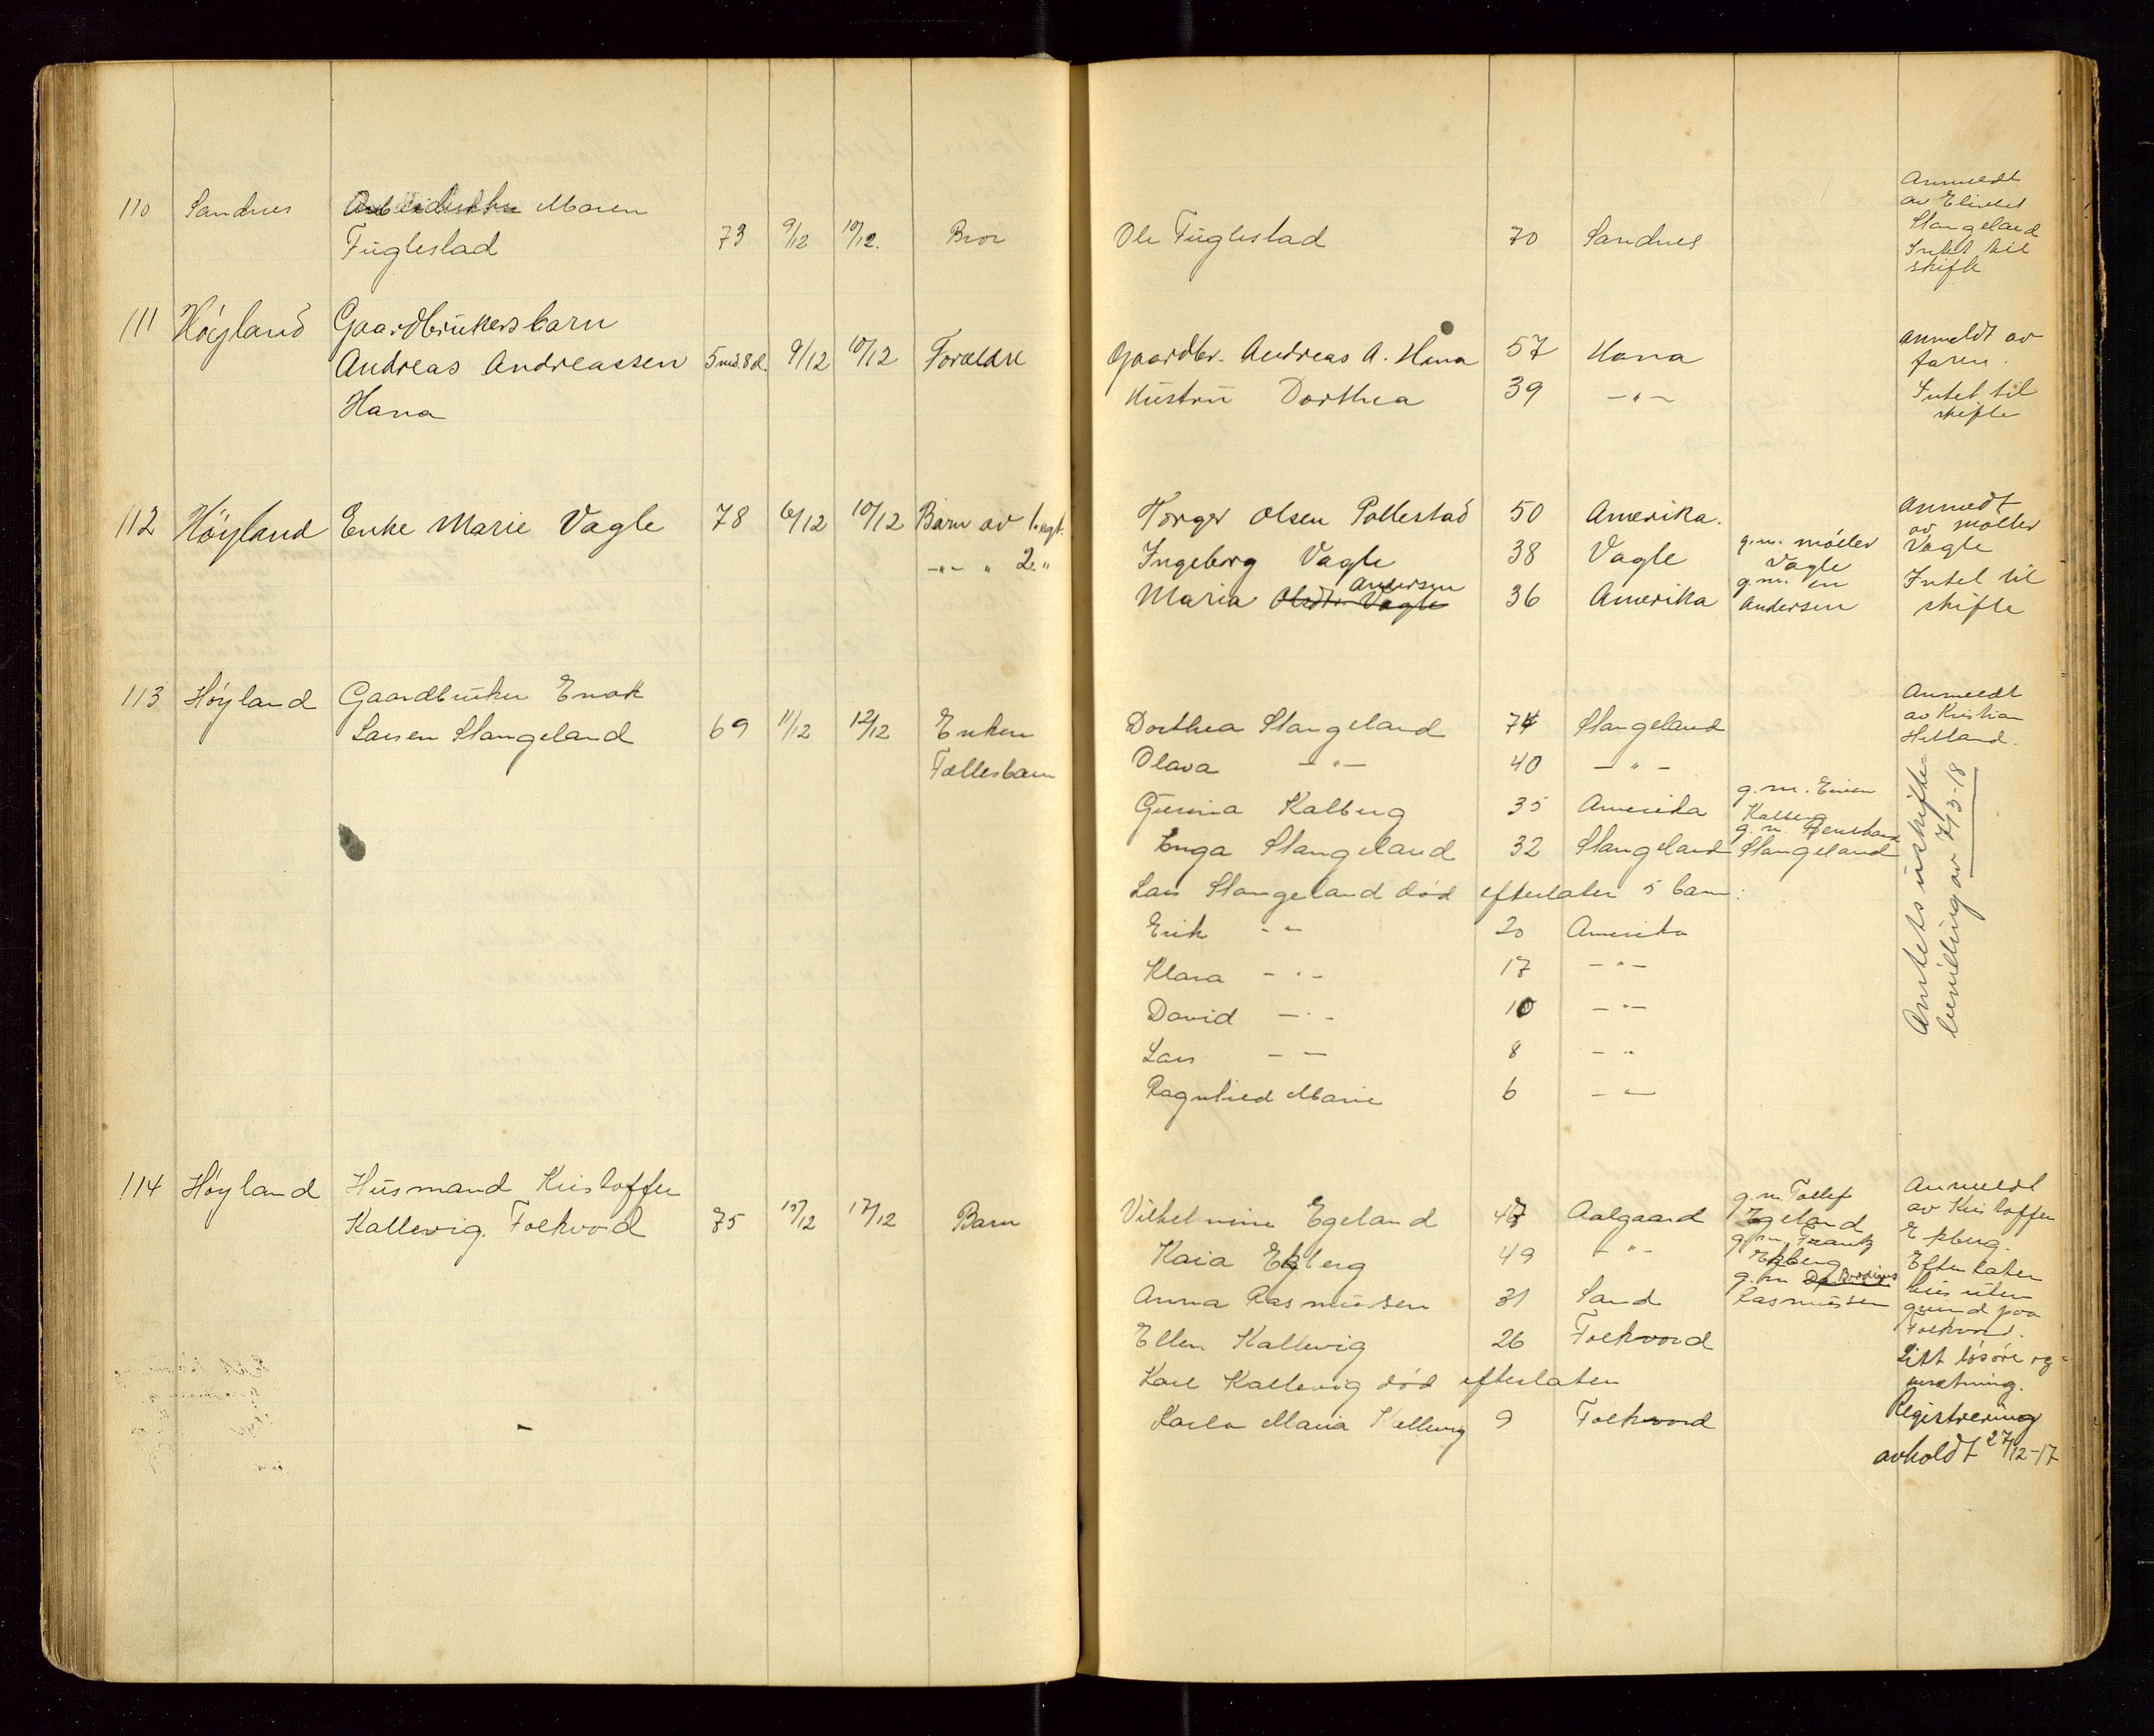 110 Sandnes Arbeiderske Maren
Fuglestad 73 9/12 10/12. Bror Ole Fuglestad 70 Sandnes
Anmeldt
av Elisabet
Stangeland
Intet til
skifte
111 Høyland Gaardbrukersbarn
Andreas Andreassen 5md.8d. 9/12 10/12 Forældre Gaardbr. Andreas A. Hana 57 Hana
Hana Hustru Dorthea 39 -"-
Anmeldt av
faren.
Intet til
skifte
112 Høyland Enke Marie Vagle 78 6/12 10/12 Barn av 1. egt. Torger Olsen Pollestad 50 Amerika.
-"- " 2. " Ingeborg Vagle 38 Vagle g.m. møller Vagle
Maria Olsdtr. Vagle Andersen 36 Amerika g.m. en Andersen
Anmeldt
av møller
Vagle
Intet til
skifte
113 Høyland Gaardbruker Enok
Larsen Stangeland 69 11/12 12/12 Enken Dorthea Stangeland 74 Stangeland
Fællesbarn Olava -"- 40 -"-
Gurina Kalberg 35 Amerika g.m. Kalberg
Inga Stangeland 32 Stangeland g.m. Stangeland
Lars Stangeland død efterlater 5 barn:
Erik -"- 20 Amerika
Klara -"- 17 -"-
David -"- 10 -"-
Lars -"- 8 -"-
Ragnhild Marie 6 -"-
Anmeldt
av Kristian
Helland.
Amtets uskifte-
bevilling av 7/3-18
114 Høyland Husmand Kristoffer
Kallevig. Folkvord 75 15/12 17/12 Barn Vilhelmine Egeland 47 Aalgaard g.m. Tollef Egeland
Kaia Ekberg 49 -"- g.m. Frantz Ekberg
Anna Rasmussen 31 Sand g.m. Rasmussen
Ellen Kallevig 26 Folkvord
Karl Kallevig død efterlater
Karla Maria Kallevig 9 Folkvord
Anmeldt
av Kristoffer
Ekberg.
Efterlater
hus uten
grund paa
Folkvord.
Litt løsøre og
Registrering
avholdt 27/12-17